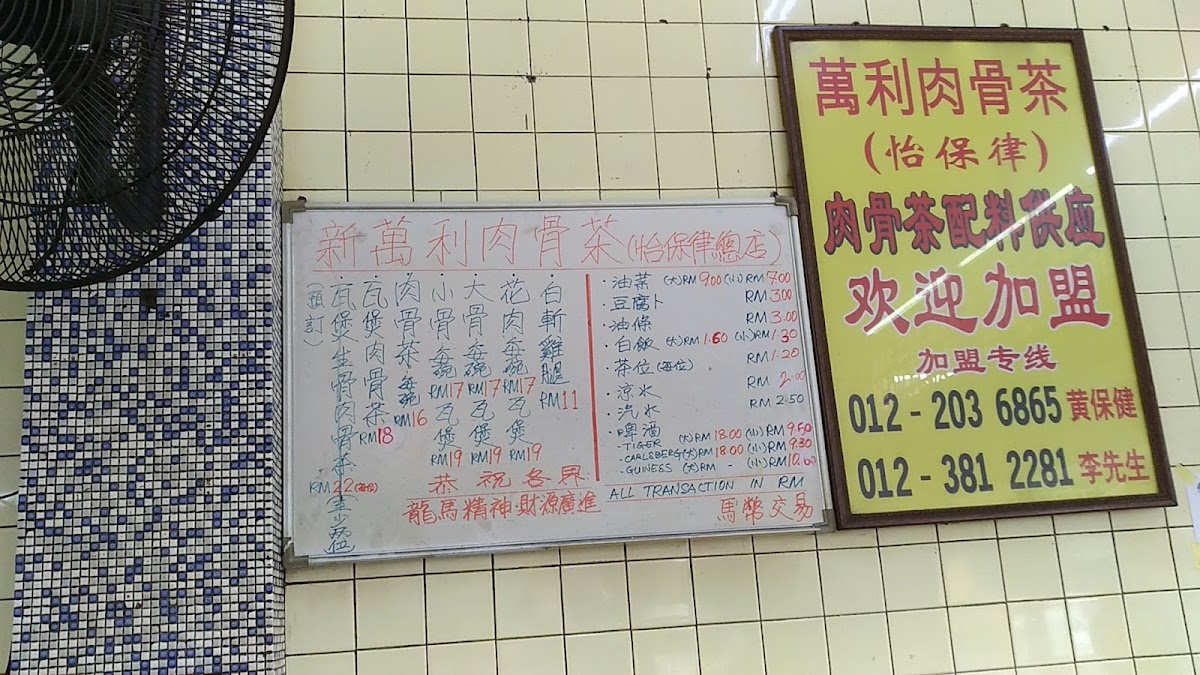 新萬利肉骨茶(怡保律總店)
白斬雞腿 RM11
花肉每碗 RM17 瓦煲 RM19
大骨每碗 RM17 瓦煲 RM19
小骨每碗 RM17 瓦煲 RM19
肉骨茶每碗 RM16
瓦煲肉骨茶 RM18
瓦煲生骨肉骨茶 RM22(每位)
(預訂)
恭祝各界
龍馬精神財源廣進
·油菜 (大)RM9.00 (小)RM7.00
·豆腐卜 RM3.00
·油條 RM3.00
·白飯 (大)RM1.60 (小)RM1.30
·茶位(每位) RM1.20
·涼水 RM2.00
·汽水 RM2.50
·啤酒
-TIGER (大)RM18.00 (小)RM9.50
-CARLSBERG(大)RM18.00 (小)RM9.30
-GUINESS (大)RM - (小)RM10.60
ALL TRANSACTION IN RM
馬幣交易
萬利肉骨茶
(怡保律)
肉骨茶配料供应
欢迎加盟
加盟专线
012-203 6865 黄保健
012-381 2281 李先生